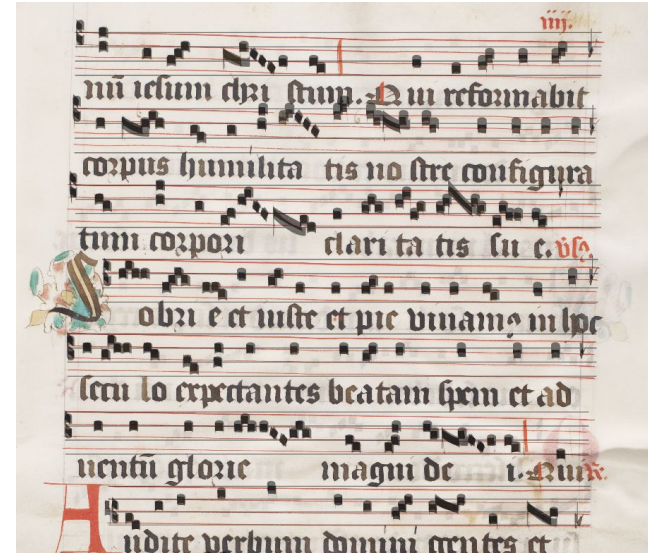 iiij.
nū iesum chri stum. Qui reformabit
corpus humilita tis no stre configura
tum corpori clari ta tis su e. vs̄.
Sobri e et iuste et pie viuamꝯ in hoc
secu lo expectantes beatam spem et ad
uentū glorie magni de i. Qui r.
Audite verbum domini gentes et